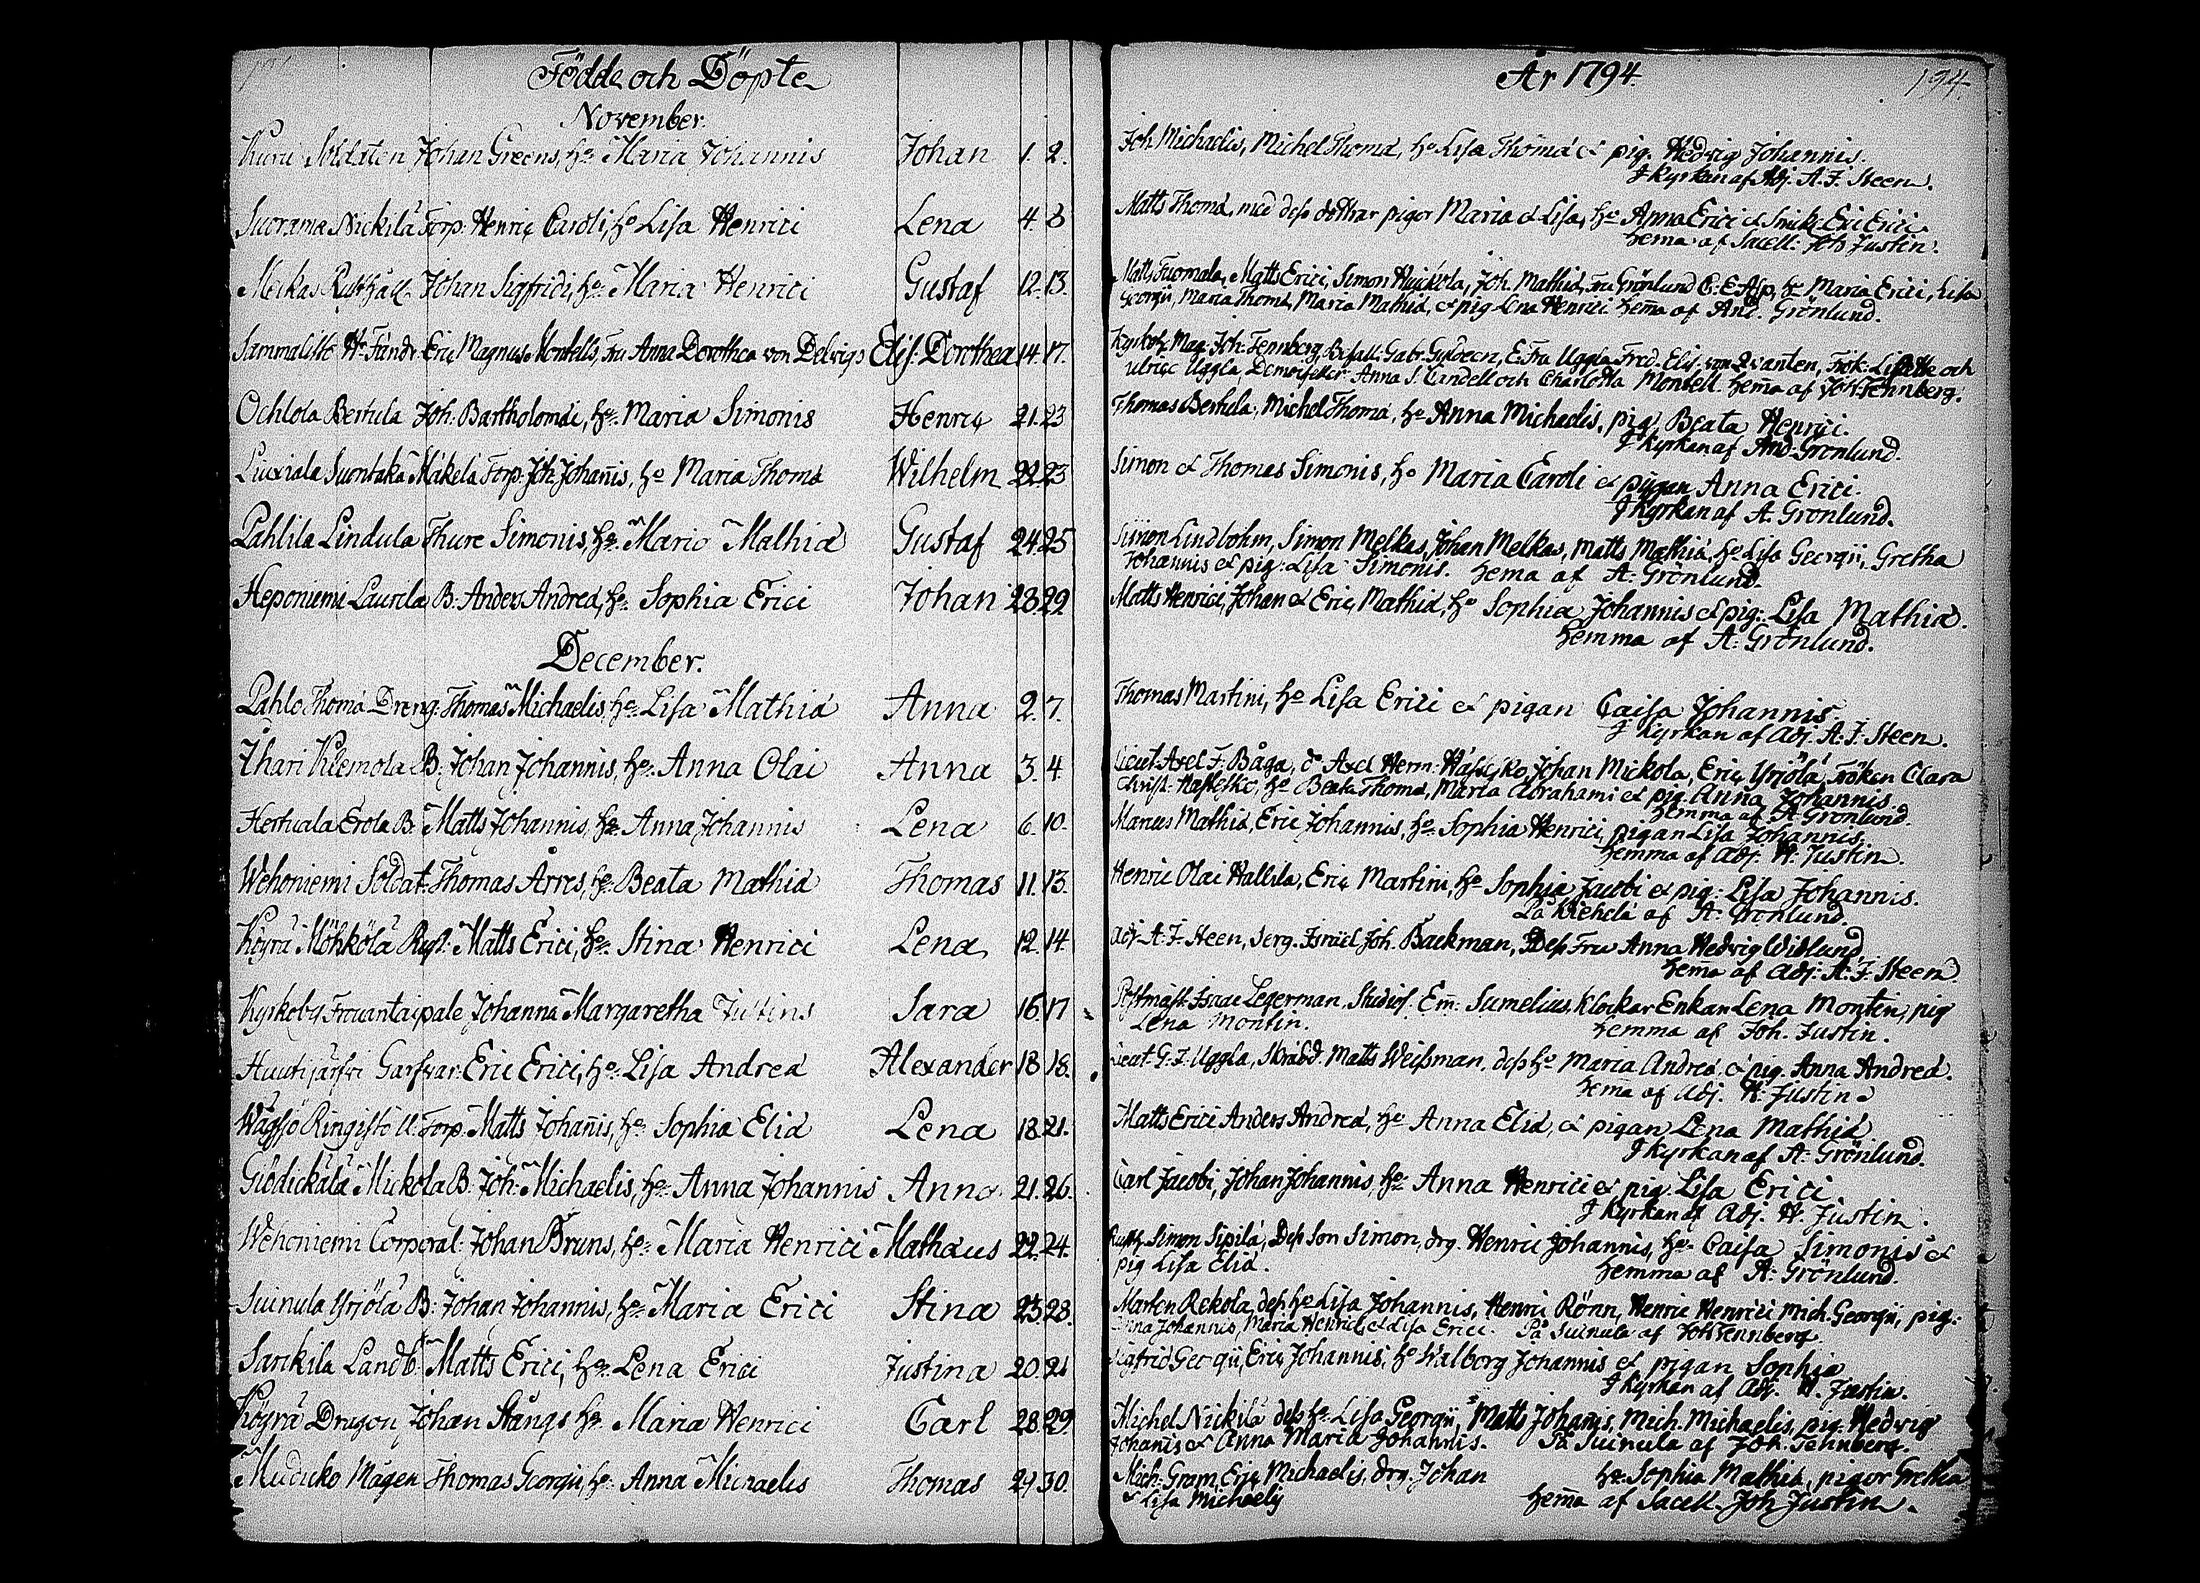 Födde och Döpte
November.
Kuru Soldaten Johan Greens, ho Maria Johannis Johan 1. 2.
Suorama Nickilä Torp. Henric Caroli, ho Lisa Henrici Lena 4. 8
Meskas Johan Sigfridi, ho Maria Henrici Gustaf 12. 13.
Sammalisto Hr Fändr. Eric Magnus Montells, Fru Anna Dorothea von Delvigs Elis. Dorothea 14. 17.
Ochlola Bertula Joh. Bartholomäi, ho Maria Simonis Henric 21. 23
Liuxiala Suontaka Mäkelä Torp. Joh. Johanis, ho Maria Thomä Wilhelm 22. 23
Pahlila Lindula Thure Simonis, ho Maria Mathiä Gustaf 24. 25
Heponiemi Laurila B. Anders Andreä, ho Sophia Erici Johan 28. 29
December.
Pahlo Thomä Dreng. Thomas Michaelis, ho Lisa Mathiä Anna 2. 7.
Ihari Klemola B. Johan Johannis, ho Anna Olai Anna 3. 4.
Hertuala Erola B. Matts Johannis, ho Anna Johannis Lena 6. 10.
Wehoniemi Soldat. Thomas Arres, ho Beata Mathiä Thomas 11. 13.
Köyrä Möhkölä Rust. Matts Erici, ho Stina Henrici Lena 12. 14
Kyrkoby Johanna Margaretha Justins Sara 16. 17
Huutijärfvi Garfvar. Eric Erici, ho Lisa Andreä Alexander 18 18.
Wägsjö Ringistö U. Torp. Matts Johanis, ho Sophia Eliä Lena 18. 21.
Mickola B. Joh. Michaelis, ho Anna Johannis Anna 21. 26.
Wehoniemi Corporal. Johan Bruns, ho Maria Henrici Mathæus 22. 24.
Suinula Yrjölä B. Johan Johannis, ho Maria Erici Stina 23. 28.
Sarckila Landb. Matts Erici, ho Lena Erici Justina 20. 21
Köyrä Dragon Johan Stångs ho Maria Henrici Carl 28. 29.
Thomas Georgii, ho Anna Michaelis Thomas 29 30.
År 1794.
194
Joh. Michaelis, Michel Thomä, ho Lisa Thomä & pig. Hedvig Johannis.
I Kyrkan af Adj. A. F. Steen.
Matts Thomä, med dess döttrar pigor Maria & Lisa, ho Anna Erici & Snick. Eric Erici.
hema af Sacell. Joh. Justin.
Matts Tuomala, Matts Erici, Simon Huickola, Joh. Mathiä, Fru Grönlund C. E. Asp, ho Maria Erici, Lisa
Georgii, Maria Thomä, Maria Mathiä, & pig Lena Henrici hema af And. Grönlund.
Kyrkoh. Mag. Joh. Fennberg, Befall. Gabr. Gyldeen, E. Fru Uggla Fred. Elis. von Qvanten, Frök. Lisette och
Ulrice Uggla, Demoiseller Anna S. Candell och Charlotta Montell hema af Joh. Fennberg.
Thomas Bertula, Michel Thomä, ho Anna Michaelis, pig. Beata Henrici.
I Kyrkan af And. Grönlund.
Simon & Thomas Simonis, ho Maria Caroli & pigan Anna Erici.
I Kyrkan af A. Grönlund.
Simon Lindbohm, Simon Melkas, Johan Melkas, Matts Mathiä, ho Lisa Georgii, Gretha
Johannis & pig. Lisa Simonis. hema af A. Grönlund.
Matts Henrici, Johan & Eric Mathiä, ho Sophia Johannis & pig. Lisa Mathiä.
hemma af A. Grönlund.
Thomas Martini, ho Lisa Erici & pigan Caisa Johannis
I Kyrkan af Adj. A. F. Steen.
Lieut Axel F. Båga, do Axel Herm. Johan Mickola, Eric Yrjölä, Fröken Clara
Christ. ho Beata Thomä, Maria Abrahami & pig. Anna Johannis.
hemma af A. Grönlund.
Marcus Mathiä, Eric Johannis, ho Sophia Henrici, pigan Lisa Johannis.
hemma af Adj. H. Justin.
Henric Olai Wallila, Eric Martini, ho Sophia Jacobi & pig. Lisa Johannis.
På af A. Grönlund.
Adj. A. F. Steen, Serg. Israël Joh. Backman, Dess Fru Anna Hedvig Widlund
hema af Adj. A. F. Steen.
Postmäst. Isaac Legerman, Studios. Em. Sumelius, Klockar Enkan Lena Montin, pig
Lena Montin. hemma af Joh. Justin.
Lieut. G. F. Uggla, Skrädd. Matts Weisman, dess ho Maria Andreä, & pig. Anna Andreä.
hema af Adj. H. Justin
Matts Erici Anders Andreä, ho Anna Eliä, & pigan Lena Mathiä
I Kyrkan af A. Grönlund.
Carl Jacobi, Johan Johannis, ho Anna Henrici & pig. Lisa Erici
I Kyrkan af Adj. H. Justin.
Rusth. Simon Sipilä, Dess Son Simon, drg. Henric Johannis, ho Caisa Simonis &
pig Lisa Eliä. hemma af A. Grönlund.
Marten Rekola, dess ho Lisa Johannis, Henric Rönn, Henric Henrici Mich. Georgii, pig.
Anna Johannis, Maria Henrici, & Lisa Erici. På Suinula af Joh. Fennberg.
Sigfrid Georgii, Eric Johannis, ho Walborg Johannis & pigan Sophia
I Kyrkan af Adj. H. Justin.
Michel Nickilä dess ho Lisa Georgii, Matts Johanis, Mich. Michaelis, pig. Hedvig
Johanis & Anna Maria Johannis. På Suinula af Joh. Fennberg.
Mich. Gram, Eric Michaelis, drg. Johan ho Sophia Mathiä, pigor Gretha
& Lisa Michaelis hema af Sacell. Joh. Justin.